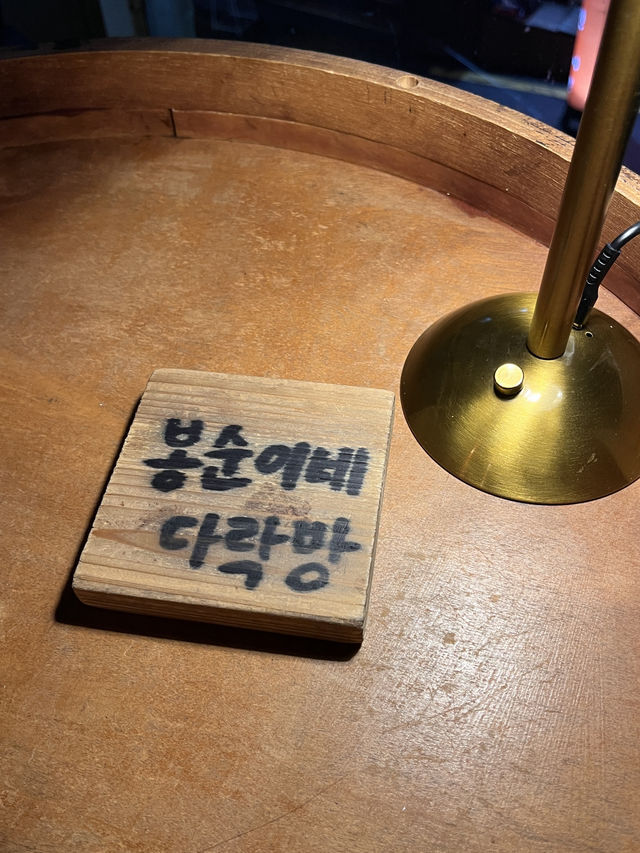 봉순이테
다락방